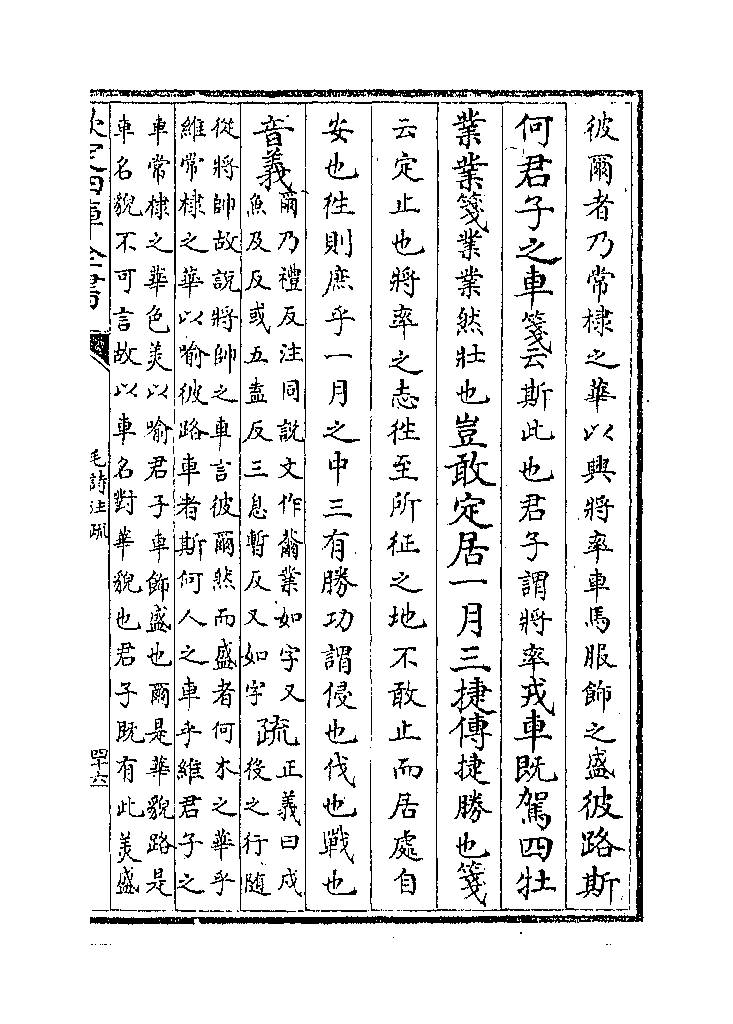 彼爾者乃常棣之華以興將率車馬服飾之盛彼路斯
何君子之車箋云斯此也君子謂將率戎車既駕四牡
業業箋業業然壯也豈敢定居一月三捷傳捷勝也箋
云定止也將率之志徃至所征之地不敢止而居處自
安也徃則庶乎一月之中三有勝功謂侵也伐也戰也
音義
爾乃禮反注同說文作薾業如字又
魚及反或五盍反三息暫反又如字
疏
正義曰戍
役之行隨
從將帥故說將帥之車言彼爾然而盛者何木之華乎
維常棣之華以喻彼路車者斯何人之車乎維君子之
車常棣之華色美以喻君子車飾盛也爾是華貌路是
車名貌不可言故以車名對華貌也君子既有此美盛
欽定四庫全書
毛詩注疏
四十六